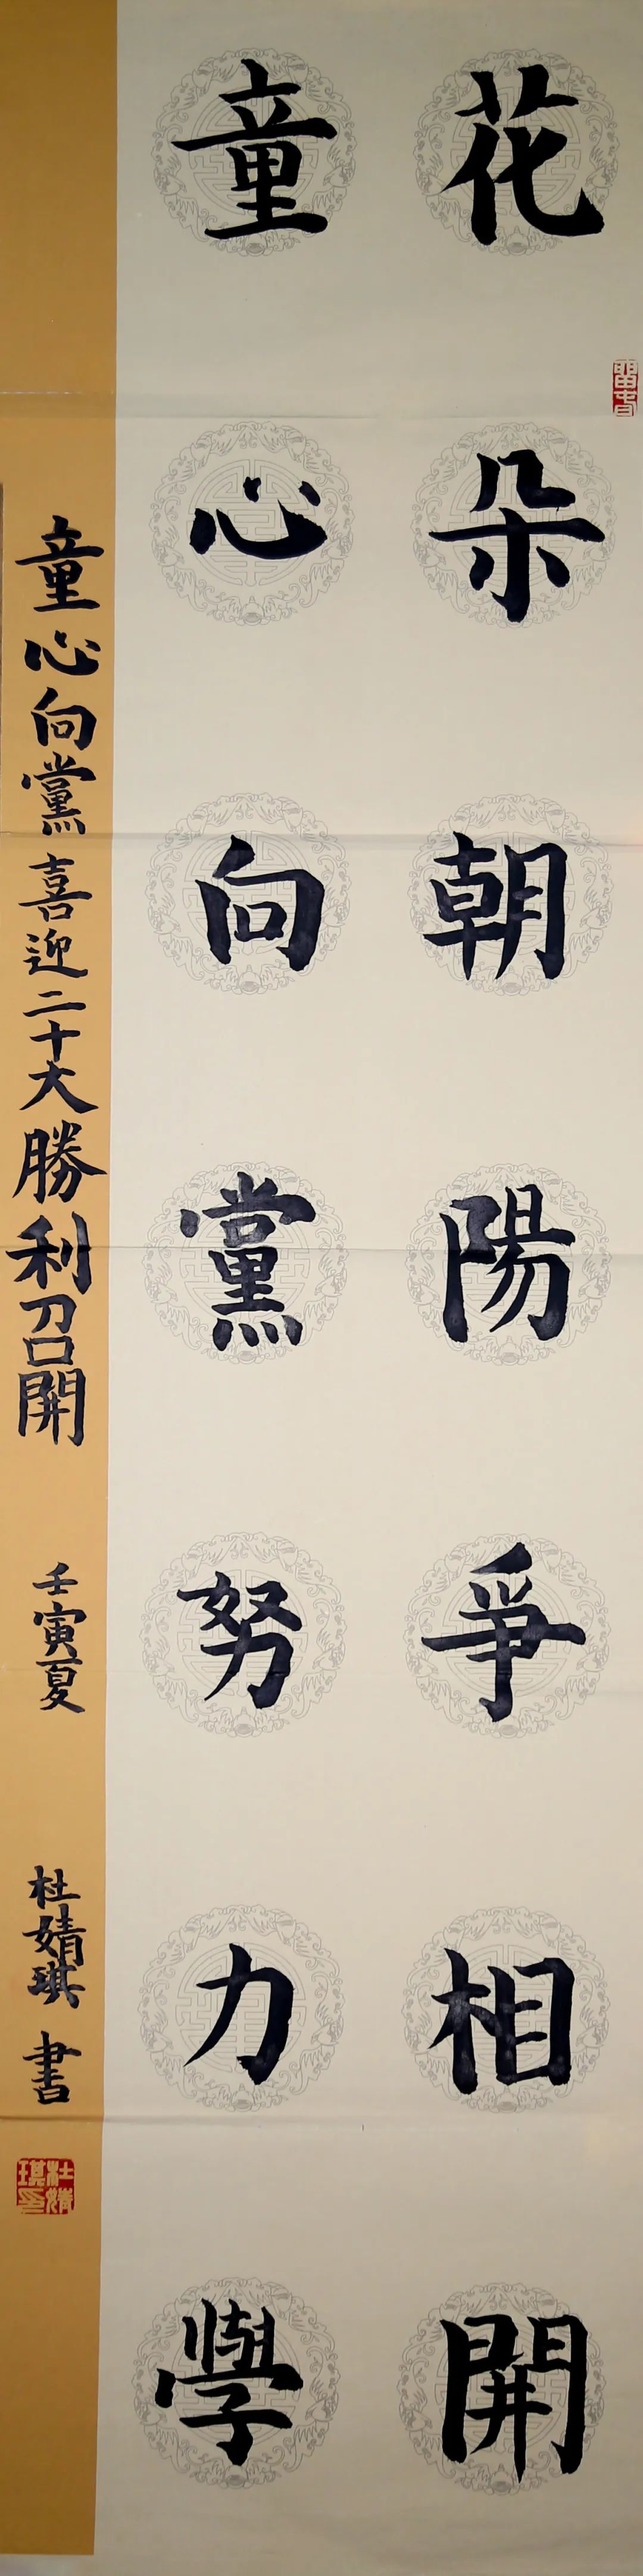 花朵朝陽爭相開
童心向黨努力學
童心向黨喜迎二十大勝利召開
壬寅夏
杜婧琪書
杜婧琪印